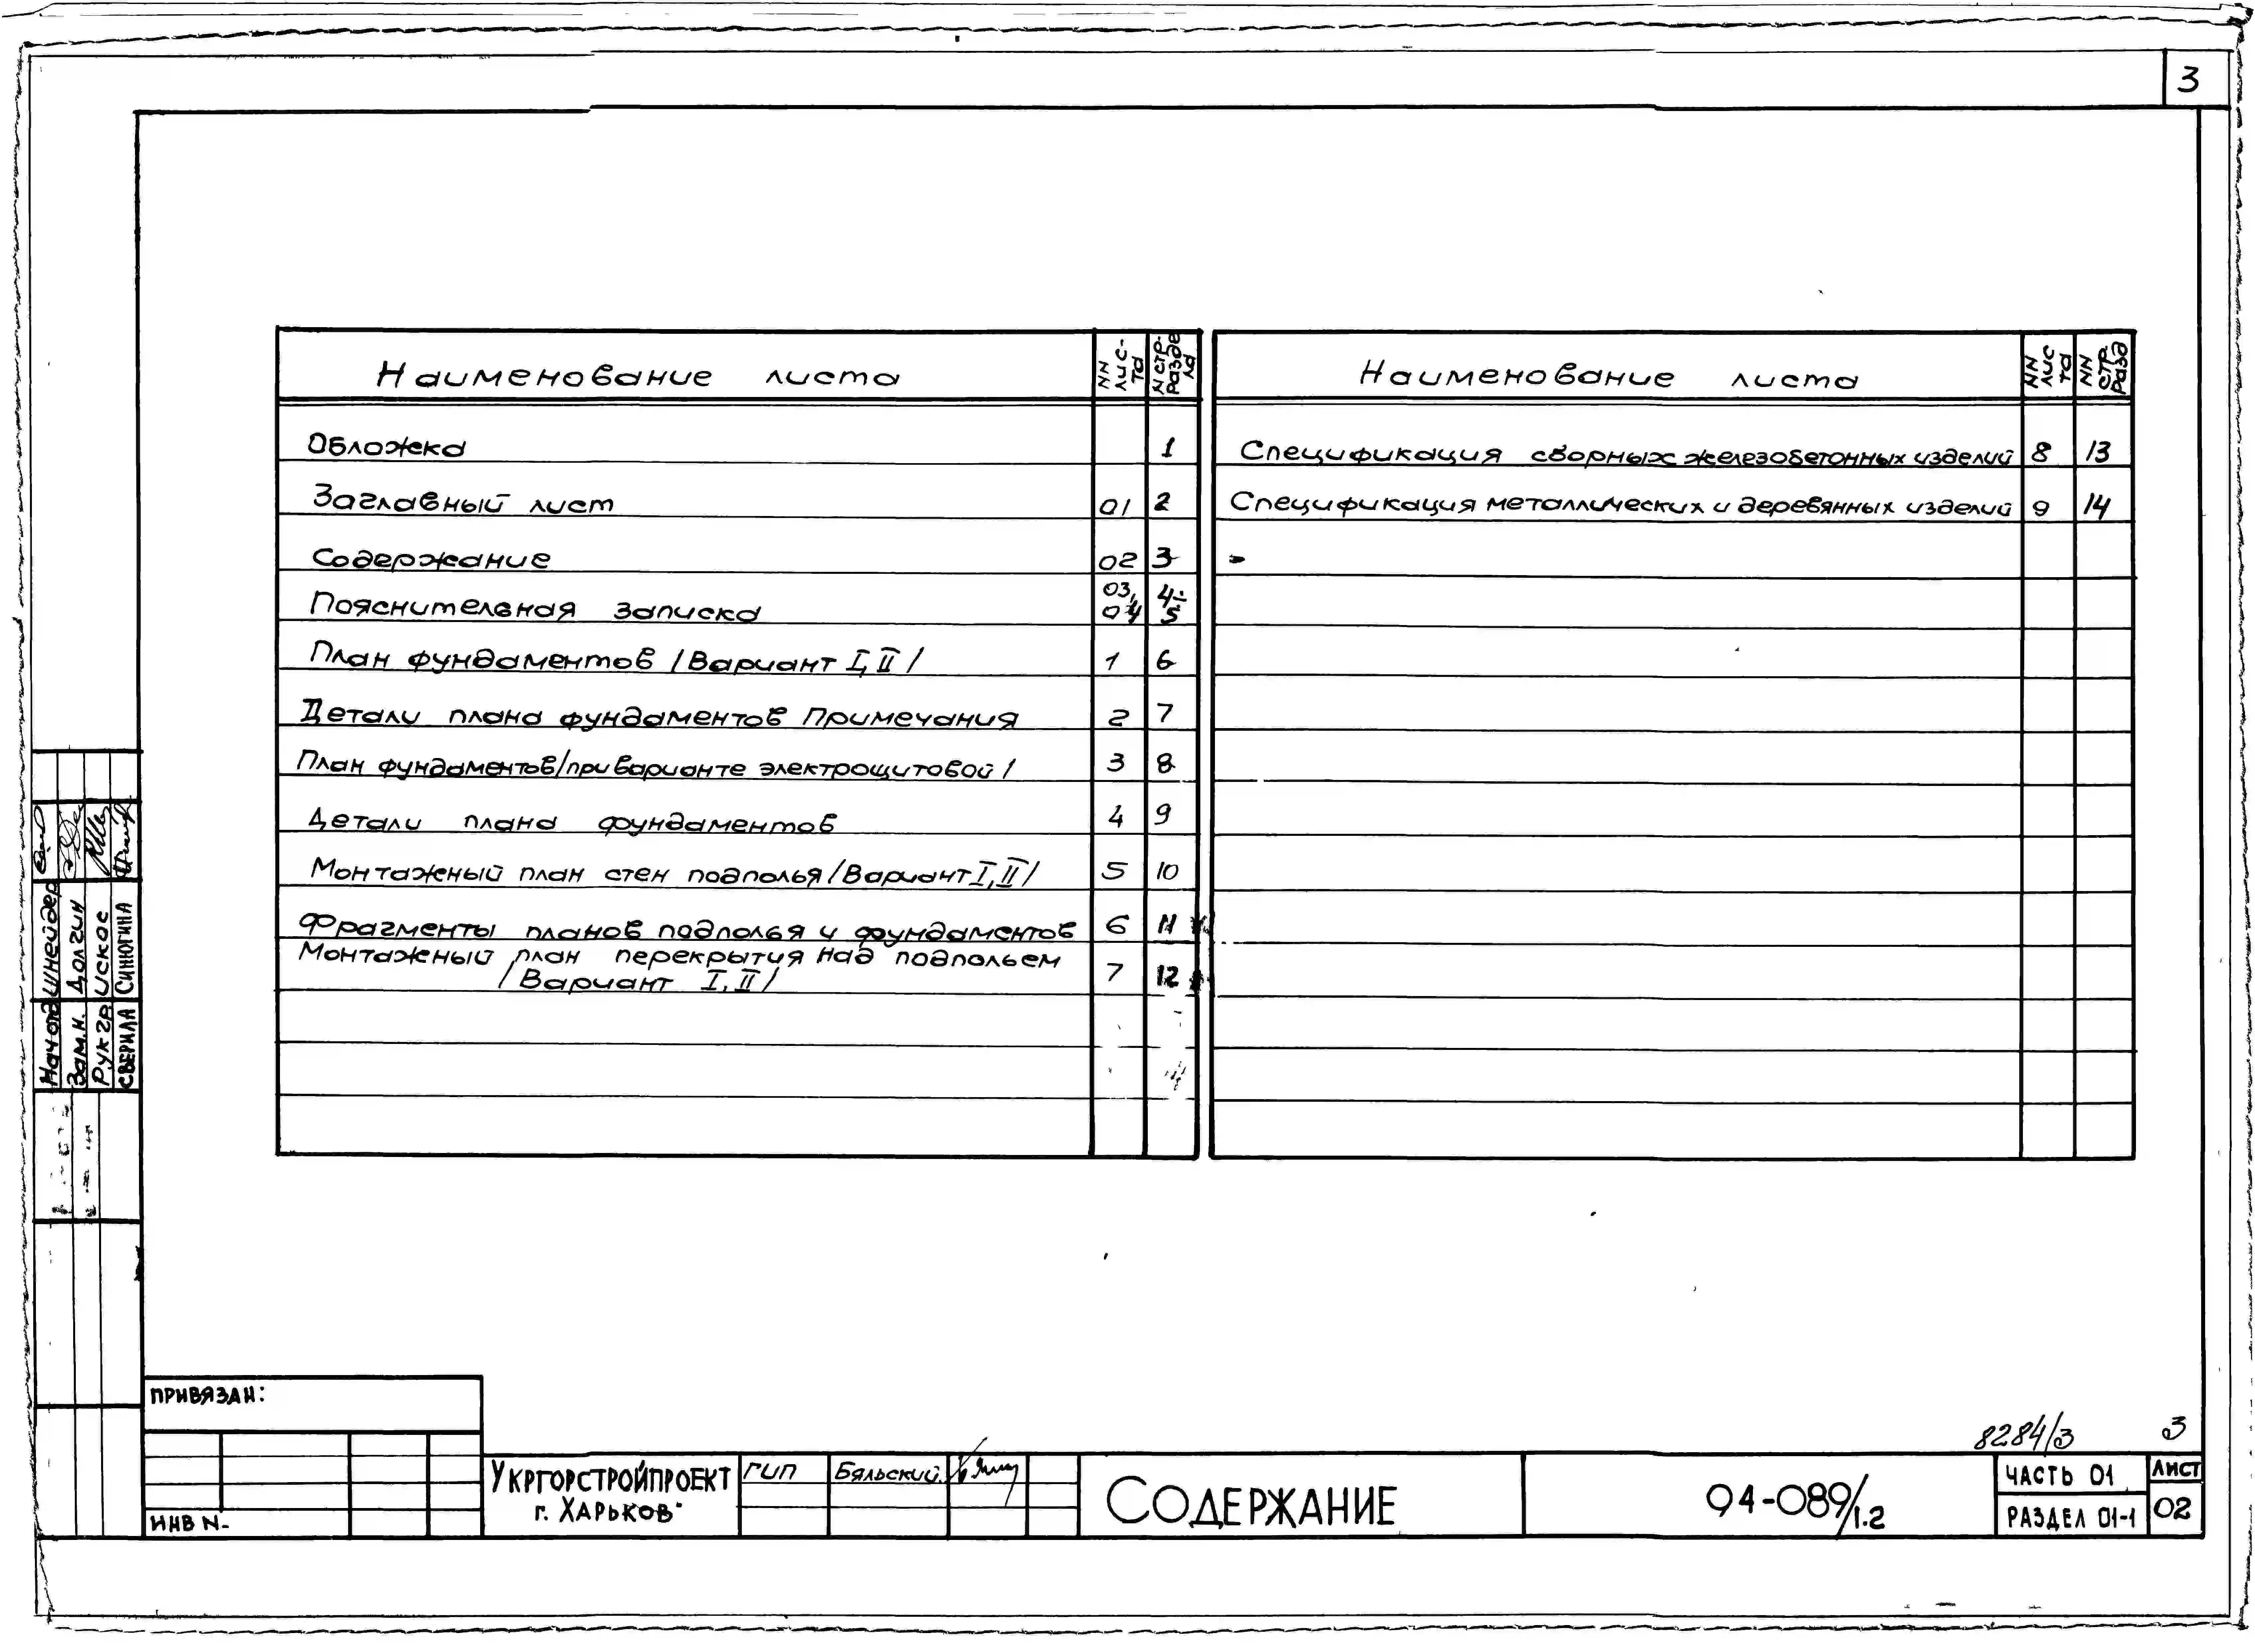 3
Наименование листа | NN лис-та | N стр. раздела
Обложка | | 1
Заглавный лист | 01 | 2
Содержание | 02 | 3
Пояснительная записка | 03, 04 | 4÷5
План фундаментов /Вариант I, II/ | 1 | 6
Детали плана фундаментов Примечания | 2 | 7
План фундаментов /при варианте электрощитовой/ | 3 | 8
Детали плана фундаментов | 4 | 9
Монтажный план стен подполья /Вариант I, II/ | 5 | 10
Фрагменты планов подполья и фундаментов | 6 | 11
Монтажный план перекрытия над подпольем
/Вариант I, II/ | 7 | 12
Наименование листа | NN лис та | NN стр. разд
Спецификация сборных железобетонных изделий | 8 | 13
Спецификация металлических и деревянных изделий | 9 | 14
Нач отд Шнейдер
Зам.н. Долгин
Рук гр Искос
Сверила Синюгина
Привязан:
Инв N-
Укргорстройпроект
г. Харьков
ГИП Бяльский
Содержание
8284/3 3
94-089/1.2
Часть 01
Раздел 01-1
Лист
02